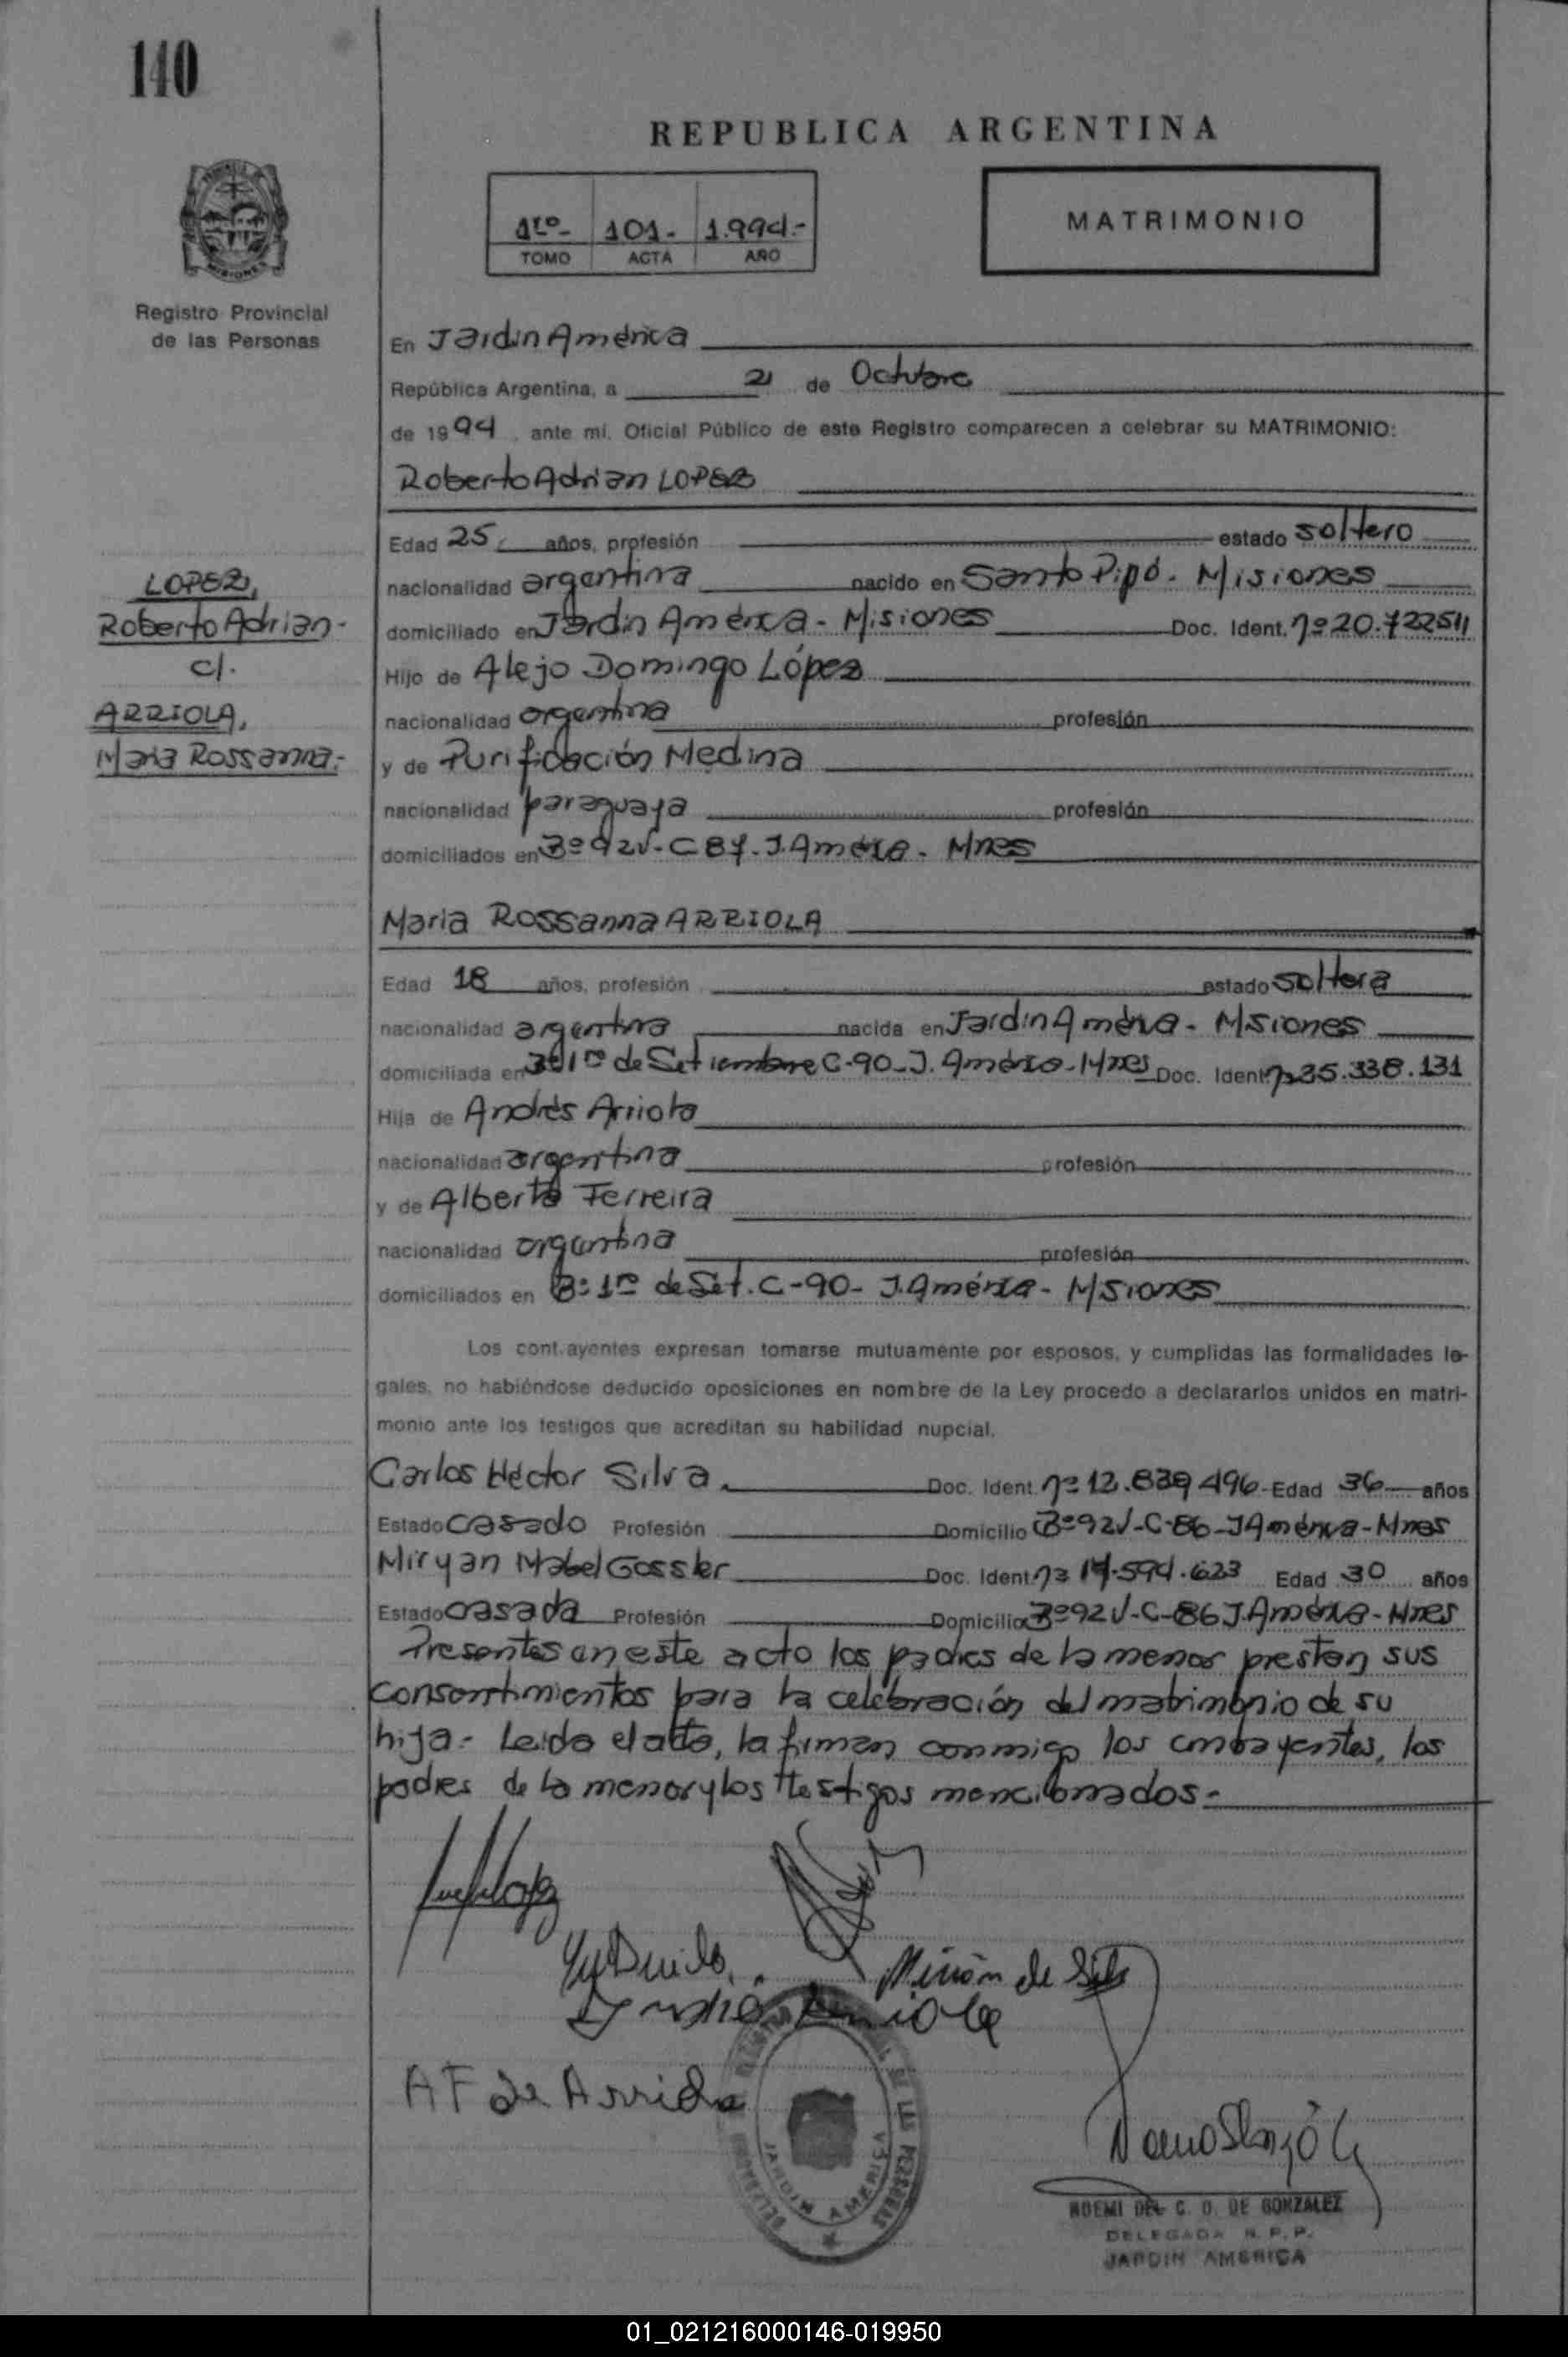 140
REPUBLICA ARGENTINA
1ro- 101- 1.994.-
TOMO ACTA AÑO
MATRIMONIO
Registro Provincial
de las Personas
En Jardin América
República Argentina, a 21 de Octubre
de 1994, ante mi, Oficial Público de este Registro comparecen a celebrar su MATRIMONIO:
Roberto Adrian LOPEZ
LOPEZ,
Roberto Adrian-
c/.
ARRIOLA,
Maria Rossanna.-
Edad 25 años, profesión estado soltero
nacionalidad argentina nacido en Santo Pipó - Misiones
domiciliado en Jardin América - Misiones Doc. Ident. nº 20.722511
Hijo de Alejo Domingo López
nacionalidad argentina profesión
y de Purificación Medina
nacionalidad paraguaya profesión
domiciliados en Bº 92V-C 87-J.América - Mnes
Maria Rossanna ARRIOLA
Edad 18 años, profesión estado soltera
nacionalidad argentina nacida en Jardin América - Misiones
domiciliada en Bº 1ro de Setiembre C-90-J. América-Mnes Doc. Ident. nº 35.338.131
Hija de Andrés Arriola
nacionalidad argentina profesión
y de Alberta Ferreira
nacionalidad argentina profesión
domiciliados en Bº 1ro de Set. C-90- J.América - Misiones
Los contrayentes expresan tomarse mutuamente por esposos, y cumplidas las formalidades le-
gales, no habiéndose deducido oposiciones en nombre de la Ley procedo a declararlos unidos en matri-
monio ante los testigos que acreditan su habilidad nupcial.
Carlos Héctor Silva Doc. Ident. nº 12.839.496- Edad 36 años
Estado casado Profesión Domicilio Bº 92V-C-86-J América-Mnes
Miryan Mabel Gossler Doc. Ident. nº 17.594.623 Edad 30 años
Estado casada Profesión Domicilio Bº 92V-C-86 J.América-Mnes
Presentes en este acto los padres de la menor prestan sus
consentimientos para la celebración del matrimonio de su
hija- Leida el acta, la firman conmigo los contrayentes, los
padres de la menor y los testigos mencionados-
Mirian de Silva
Arriola
A F de Arriola
JARDIN AMERICA
NOEMI DEL C. O. DE GONZALEZ
DELEGADA R. P. P.
JARDIN AMERICA
01_021216000146-019950